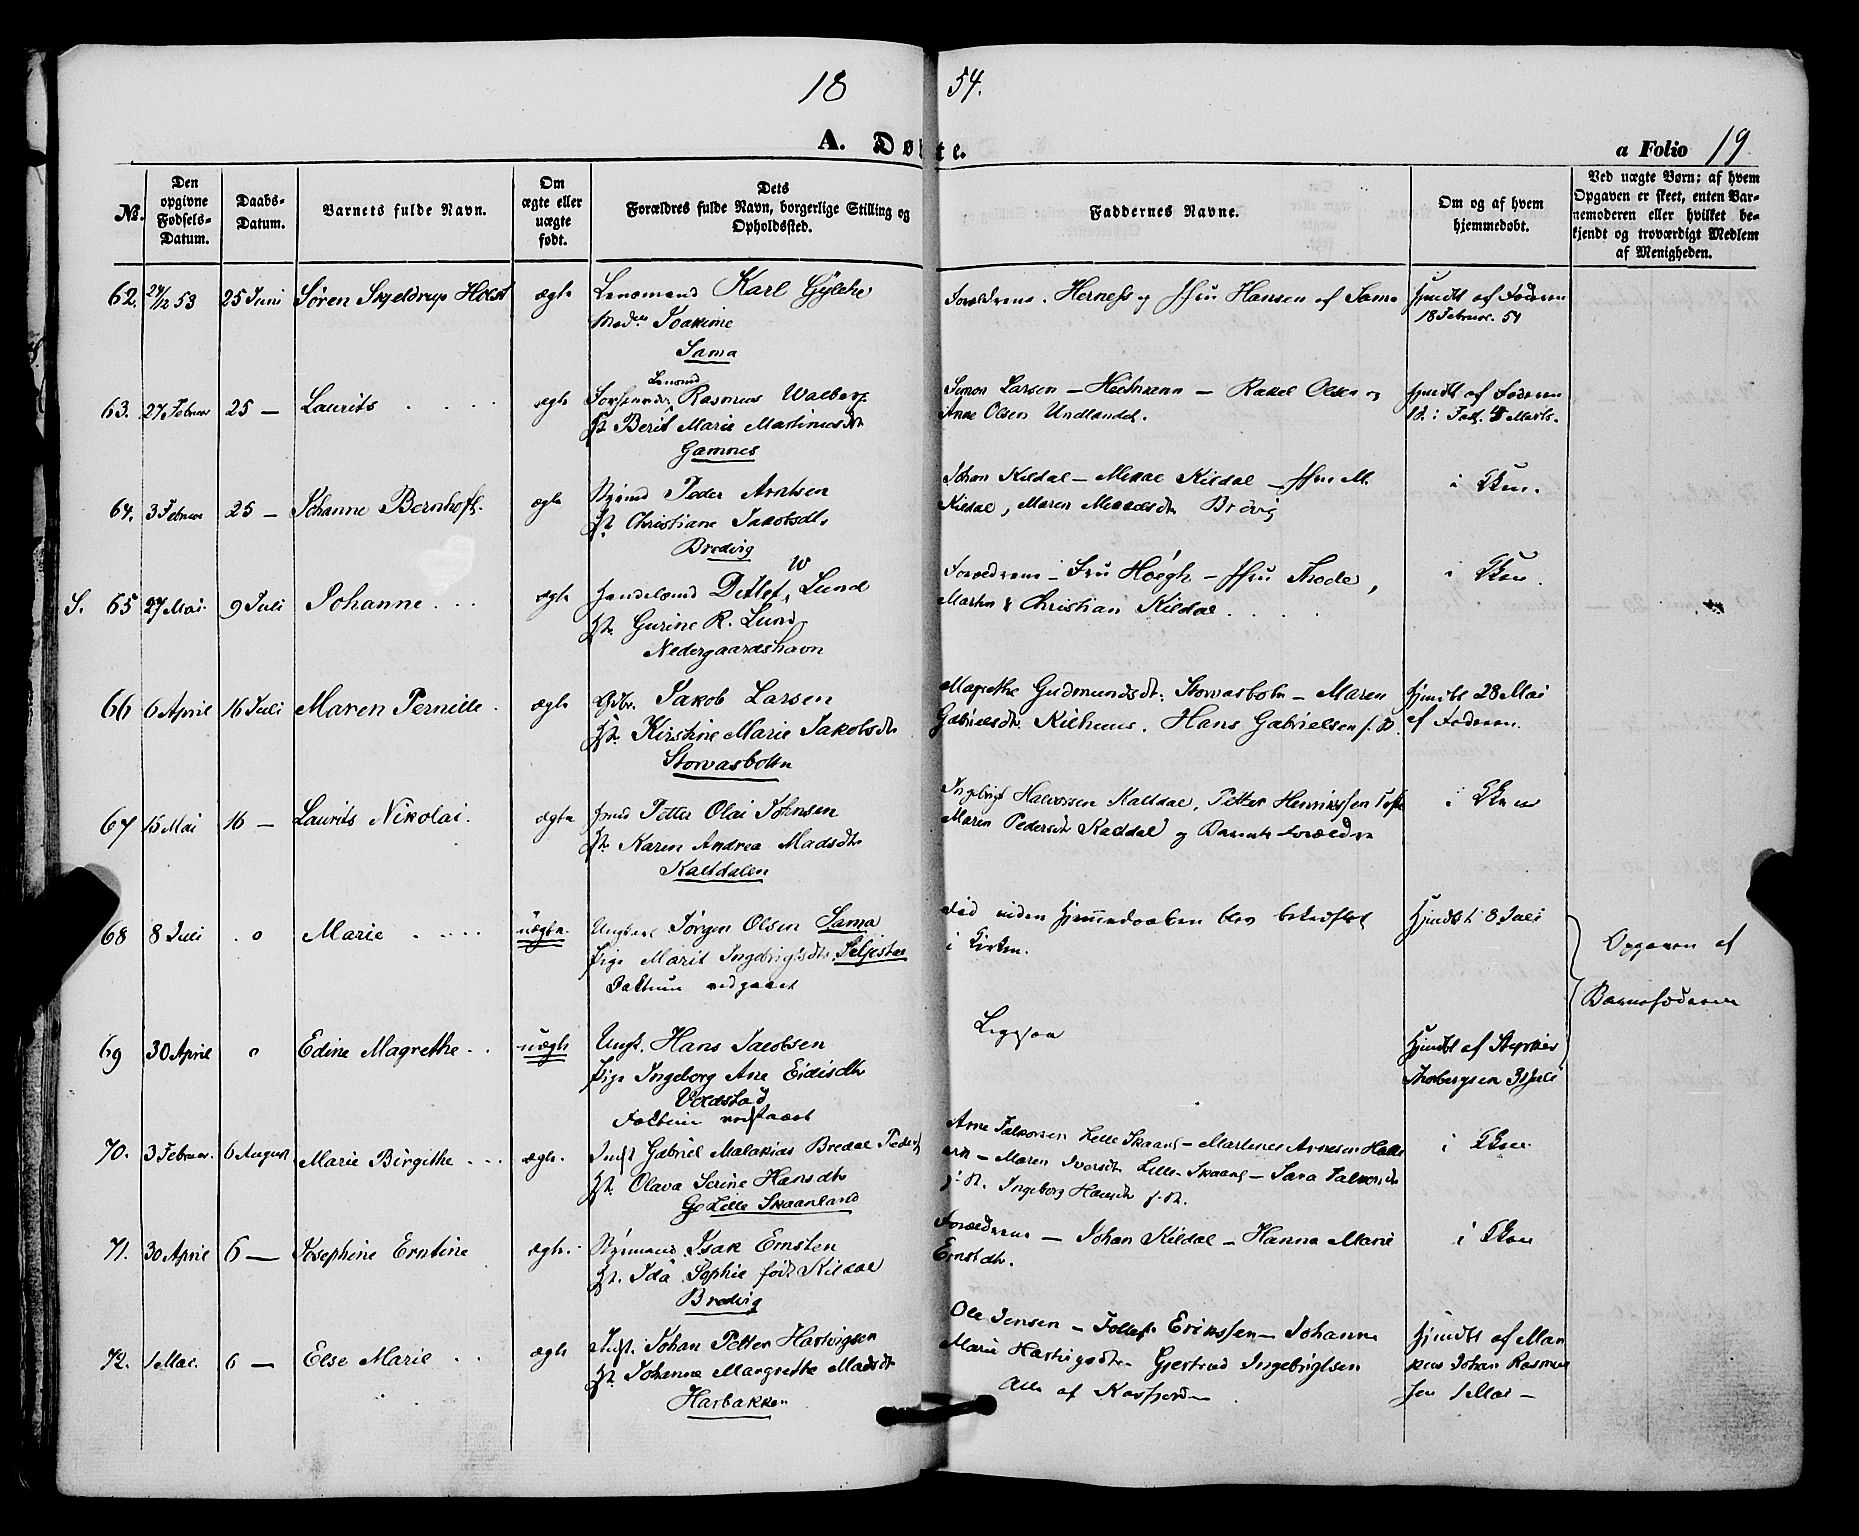 18 54.
A. Døbte.
a Folio 19
No.
Den opgivne Fødsels-Datum.
Daabs-Datum.
Barnets fulde Navn.
Om ægte eller uægte født.
Dets Forældres fulde Navn, borgerlige Stilling og Opholdssted.
Faddernes Navne.
Om og af hvem hjemmedøbt.
Ved uægte Børn; af hvem
Opgaven er skeet, enten Bar-
nemoderen eller hvilket be-
kjendt og troværdigt Medlem
af Menigheden.
62. 24/12 53 25 Juni Søren Skjeldrup Holst ægte Lensmand Karl
Joakime
Sama
Forældrene. Hansen af Sama
Hjmdbt af Faderen
18 Februar. 54
63. 27 Februar 25 — Laurits . . . . ægte Rasmus
Berit Marie Martinusdtr
Gamnes
Simon Larsen — Rakel Olsen og
Ane Olsen Undlandet.
Hjmdbt af Faderen
64. 3 Februar 25 — Johanne Bernhoft. ægte Peder Arntsen
Christiane Jakobsdtr
Bredvig
Johan Kildal — Mikal Kildal — Fru M.
Kildal, Maren
i Kken.
S. 65 27 Mai. 9 Juli Johanne . . . ægte Handelsmd Detlef W Lund
Ht. Gurine R. Lund
Nedergaardshavn
Forældrene — Fru Høegh — Fru Thode,
Marthe & Christian Kildal . . .
i Kken.
66 6 April 16 Juli Maren Pernille. ægte Jakob Larsen
Ht. Kirstine Marie Jakobsdtr
Storvasbotn
Magrethe Gudmundsdtr. Storvasbotn — Maren
Gabrielsdtr. Kilhuus. Hans Gabrielsen
Hjmdbt 28 Mai
af Faderen.
67 15 Mai 16 — Laurits Nikolai. ægte Petter Olai Johnsen
Ht. Karen Andrea Madsdtr
Kaltdalen
Ingebrigt Halvorsen Kaltdal, Petter Henrikssen
Maren Pedersdtr Kaldal og Barnets Forældre
i Kken
68 8 Juli . o Marie . . . . uægte. Ungkarl Jørgen Olsen Sama
Pige Marit Ingebrigtsdtr. Seljestad
Faktum vedgaaet
Død inden Hjemmedaaben blev bekræftet
i Kirken.
Hjmdbt 8 Juli
Opgaven af
Barnefaderen
69 30 April o Edine Magrethe . . uægte Ungk. Hans Jacobsen
Pige Ingeborg Ane Eidisdtr
Voldstad
Faktum vedgaaet
Ligesaa
Hjmdbt af
70. 3 Februar. 6 August Marie Birgithe . . . ægte. Indst Gabriel Malakias Bredal Peders
Ht. Olava Serine Hansdtr
Lille Skaanland
Arne Falksen Lille Skaanl — Martines Arnesen
Maren Iversdtr Lille-Skaanl — Sara
Ingeborg Hansdtr
i Kken
71. 30 April 6 — Josephine Erntine ægte. Isak Ernsten
Ht. Ida Sophie født Kildal
Bredvig
Forældrene — Johan Kildal — Hanna Marie
Ernstdtr.
i Kken
72. 1 Mai. 6 — Else Marie . . ægte Indst. Johan Petter Hartvigsen
Ht. Johanna Margrethe Madsdtr
Harbakken
Ole Jensen — Erikssen — Johanne
Marie Hartvigsdtr — Gjertrud Ingebrigtsen
Alle af Kasfjorden
Hjmdbt af Mar
kus Johan Rasmus
sen 1 Mai —